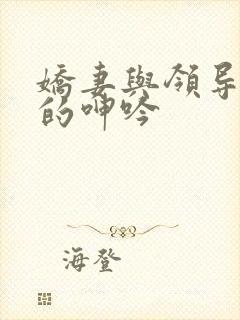 嬌妻與領导
的呻吟
海登